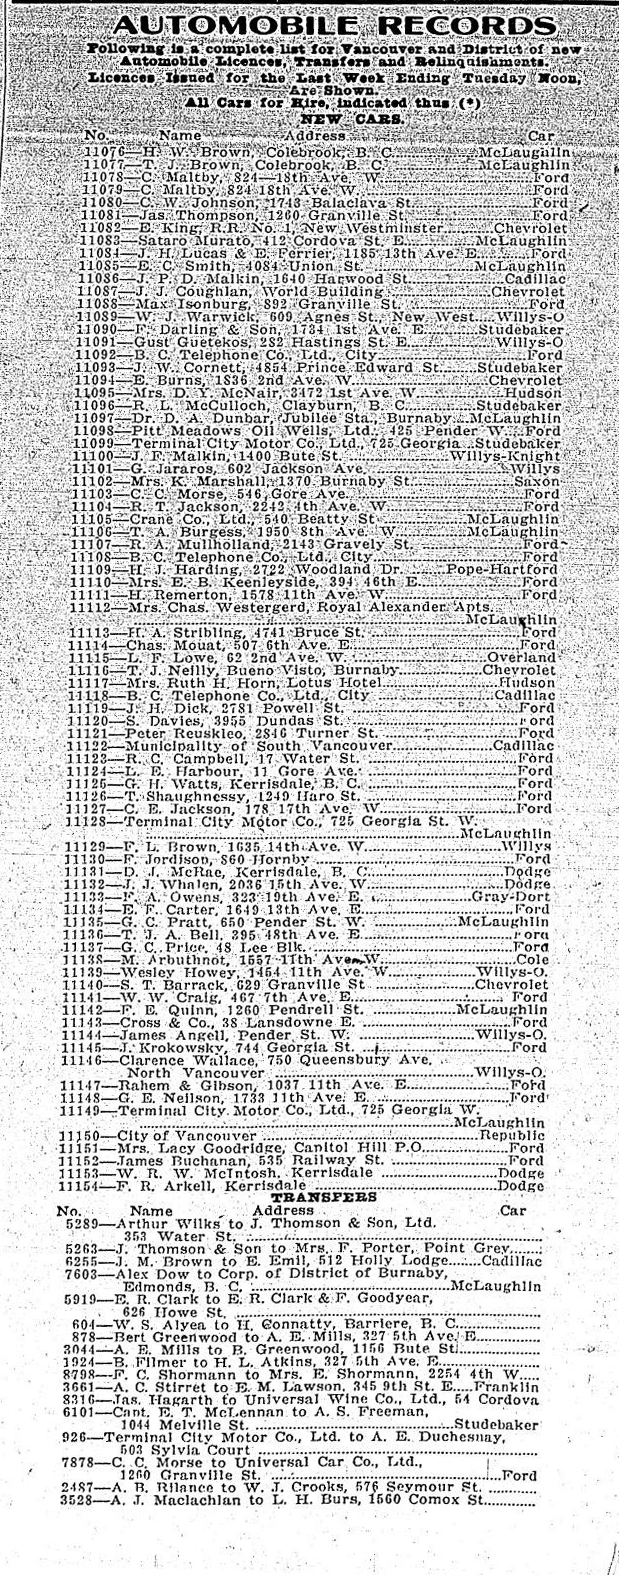 AUTOMOBILE RECORDS
Following is a complete list for Vancouver and District of new
Automobile Licences, Transfers and Relinquishments.
Licences Issued for the Last Week Ending Tuesday Noon,
Are Shown.
All Cars for Hire, indicated thus (*)
NEW CARS.
No. Name Address Car
11076—H. W. Brown, Colebrook, B. C. McLaughlin
11077—T. J. Brown, Colebrook, B. C. McLaughlin
11078—C. Maltby, 824—18th Ave. W. Ford
11079—C. Maltby, 824 18th Ave. W. Ford
11080—C. W. Johnson, 1743 Balaclava St. Ford
11081—Jas. Thompson, 1260 Granville St. Ford
11082—E. King, R.R. No. 1, New Westminster Chevrolet
11083—Sataro Murato, 412 Cordova St. E. McLaughlin
11084—J. H. Lucas & E. Ferrier, 1185 13th Ave. E. Ford
11085—E. C. Smith, 4084 Union St. McLaughlin
11086—J. P. D. Malkin, 1640 Harwood St. Cadillac
11087—J. J. Coughlan, World Building Chevrolet
11088—Max Isonburg, 892 Granville St. Ford
11089—W. J. Warwick, 609 Agnes St., New West. Willys-O
11090—F. Darling & Son, 1734 1st Ave. E. Studebaker
11091—Gust Guetekos, 282 Hastings St. E. Willys-O
11092—B. C. Telephone Co., Ltd., City Ford
11093—J. W. Cornett, 4854 Prince Edward St. Studebaker
11094—E. Burns, 1836 2nd Ave. W. Chevrolet
11095—Mrs. D. Y. McNair, 3472 1st Ave. W. Hudson
11096—R. L. McCulloch, Clayburn, B. C. Studebaker
11097—Dr. D. A. Dunbar, Jubilee Sta., Burnaby McLaughlin
11098—Pitt Meadows Oil Wells, Ltd., 425 Pender W. Ford
11099—Terminal City Motor Co., Ltd., 725 Georgia Studebaker
11100—J. F. Malkin, 1400 Bute St. Willys-Knight
11101—G. Jararos, 602 Jackson Ave. Willys
11102—Mrs. K. Marshall, 1370 Burnaby St. Saxon
11103—C. C. Morse, 546 Gore Ave. Ford
11104—R. T. Jackson, 2242 4th Ave. W. Ford
11105—Crane Co., Ltd., 540 Beatty St. McLaughlin
11106—T. A. Burgess, 1950 8th Ave. W. McLaughlin
11107—R. A. Mullholland, 2143 Gravely St. Ford
11108—B. C. Telephone Co., Ltd., City Ford
11109—H. J. Harding, 2722 Woodland Dr. Pope-Hartford
11110—Mrs. E. B. Keenleyside, 394 46th E. Ford
11111—H. Remerton, 1578 11th Ave. W. Ford
11112—Mrs. Chas. Westergerd, Royal Alexander Apts.
McLaughlin
11113—H. A. Stribling, 4741 Bruce St. Ford
11114—Chas. Mouat, 507 6th Ave. E. Ford
11115—L. F. Lowe, 62 2nd Ave. W. Overland
11116—T. J. Neilly, Bueno Visto, Burnaby Chevrolet
11117—Mrs. Ruth H. Horn, Lotus Hotel Hudson
11118—B. C. Telephone Co., Ltd., City Cadillac
11119—J. H. Dick, 2781 Powell St. Ford
11120—S. Davies, 3955 Dundas St. Ford
11121—Peter Reuskleo, 2846 Turner St. Ford
11122—Municipality of South Vancouver Cadillac
11123—R. C. Campbell, 17 Water St. Ford
11124—L. E. Harbour, 11 Gore Ave. Ford
11125—G. H. Watts, Kerrisdale, B. C. Ford
11126—T. Shaughnessy, 1249 Haro St. Ford
11127—C. E. Jackson, 178 17th Ave. W. Ford
11128—Terminal City Motor Co., 725 Georgia St. W.
McLaughlin
11129—F. L. Brown, 1635 14th Ave. W. Willys
11130—F. Jordison, 860 Hornby Ford
11131—D. J. McRae, Kerrisdale, B. C. Dodge
11132—J. J. Whalen, 2036 15th Ave. W. Dodge
11133—F. A. Owens, 323 19th Ave. E. Gray-Dort
11134—E. F. Carter, 1649 13th Ave. E. Ford
11135—G. C. Pratt, 650 Pender St. W. McLaughlin
11136—T. J. A. Bell, 395 48th Ave. E. Ford
11137—G. C. Price, 48 Lee Blk. Ford
11138—M. Arbuthnot, 1557 11th Ave. W. Cole
11139—Wesley Howey, 1454 11th Ave. W. Willys-O.
11140—S. T. Barrack, 629 Granville St. Chevrolet
11141—W. W. Craig, 467 7th Ave. E. Ford
11142—F. E. Quinn, 1260 Pendrell St. McLaughlin
11143—Cross & Co., 38 Lansdowne E. Ford
11144—James Angell, Pender St. W. Willys-O.
11145—J. Krokowsky, 744 Georgia St. Ford
11146—Clarence Wallace, 750 Queensbury Ave.
North Vancouver Willys-O.
11147—Rahem & Gibson, 1037 11th Ave. E. Ford
11148—G. E. Neilson, 1733 11th Ave. E. Ford
11149—Terminal City Motor Co., Ltd., 725 Georgia W.
McLaughlin
11150—City of Vancouver Republic
11151—Mrs. Lacy Goodridge, Capitol Hill P.O. Ford
11152—James Buchanan, 535 Railway St. Ford
11153—W. R. W. McIntosh, Kerrisdale Dodge
11154—F. R. Arkell, Kerrisdale Dodge
TRANSFERS
No. Name Address Car
5289—Arthur Wilks to J. Thomson & Son, Ltd.
353 Water St.
5263—J. Thomson & Son to Mrs. F. Porter, Point Grey
6255—J. M. Brown to E. Emil, 512 Holly Lodge Cadillac
7603—Alex Dow to Corp. of District of Burnaby,
Edmonds, B. C. McLaughlin
5919—E. R. Clark to E. R. Clark & F. Goodyear,
626 Howe St.
604—W. S. Alyea to H. Connatty, Barriere, B. C.
878—Bert Greenwood to A. E. Mills, 327 5th Ave. E.
3044—A. E. Mills to B. Greenwood, 1156 Bute St.
1924—B. Filmer to H. L. Atkins, 327 5th Ave. E.
8798—F. C. Shormann to Mrs. E. Shormann, 2254 4th W.
3661—A. C. Stirret to E. M. Lawson, 345 9th St. E. Franklin
8316—Jas. Hagarth to Universal Wine Co., Ltd., 54 Cordova
6101—Capt. E. T. McLennan to A. S. Freeman,
1044 Melville St. Studebaker
926—Terminal City Motor Co., Ltd. to A. E. Duchesnay,
503 Sylvia Court
7878—C. C. Morse to Universal Car Co., Ltd.,
1260 Granville St. Ford
2487—A. B. Rilance to W. J. Crooks, 576 Seymour St.
3528—A. J. Maclachlan to L. H. Burs, 1560 Comox St.